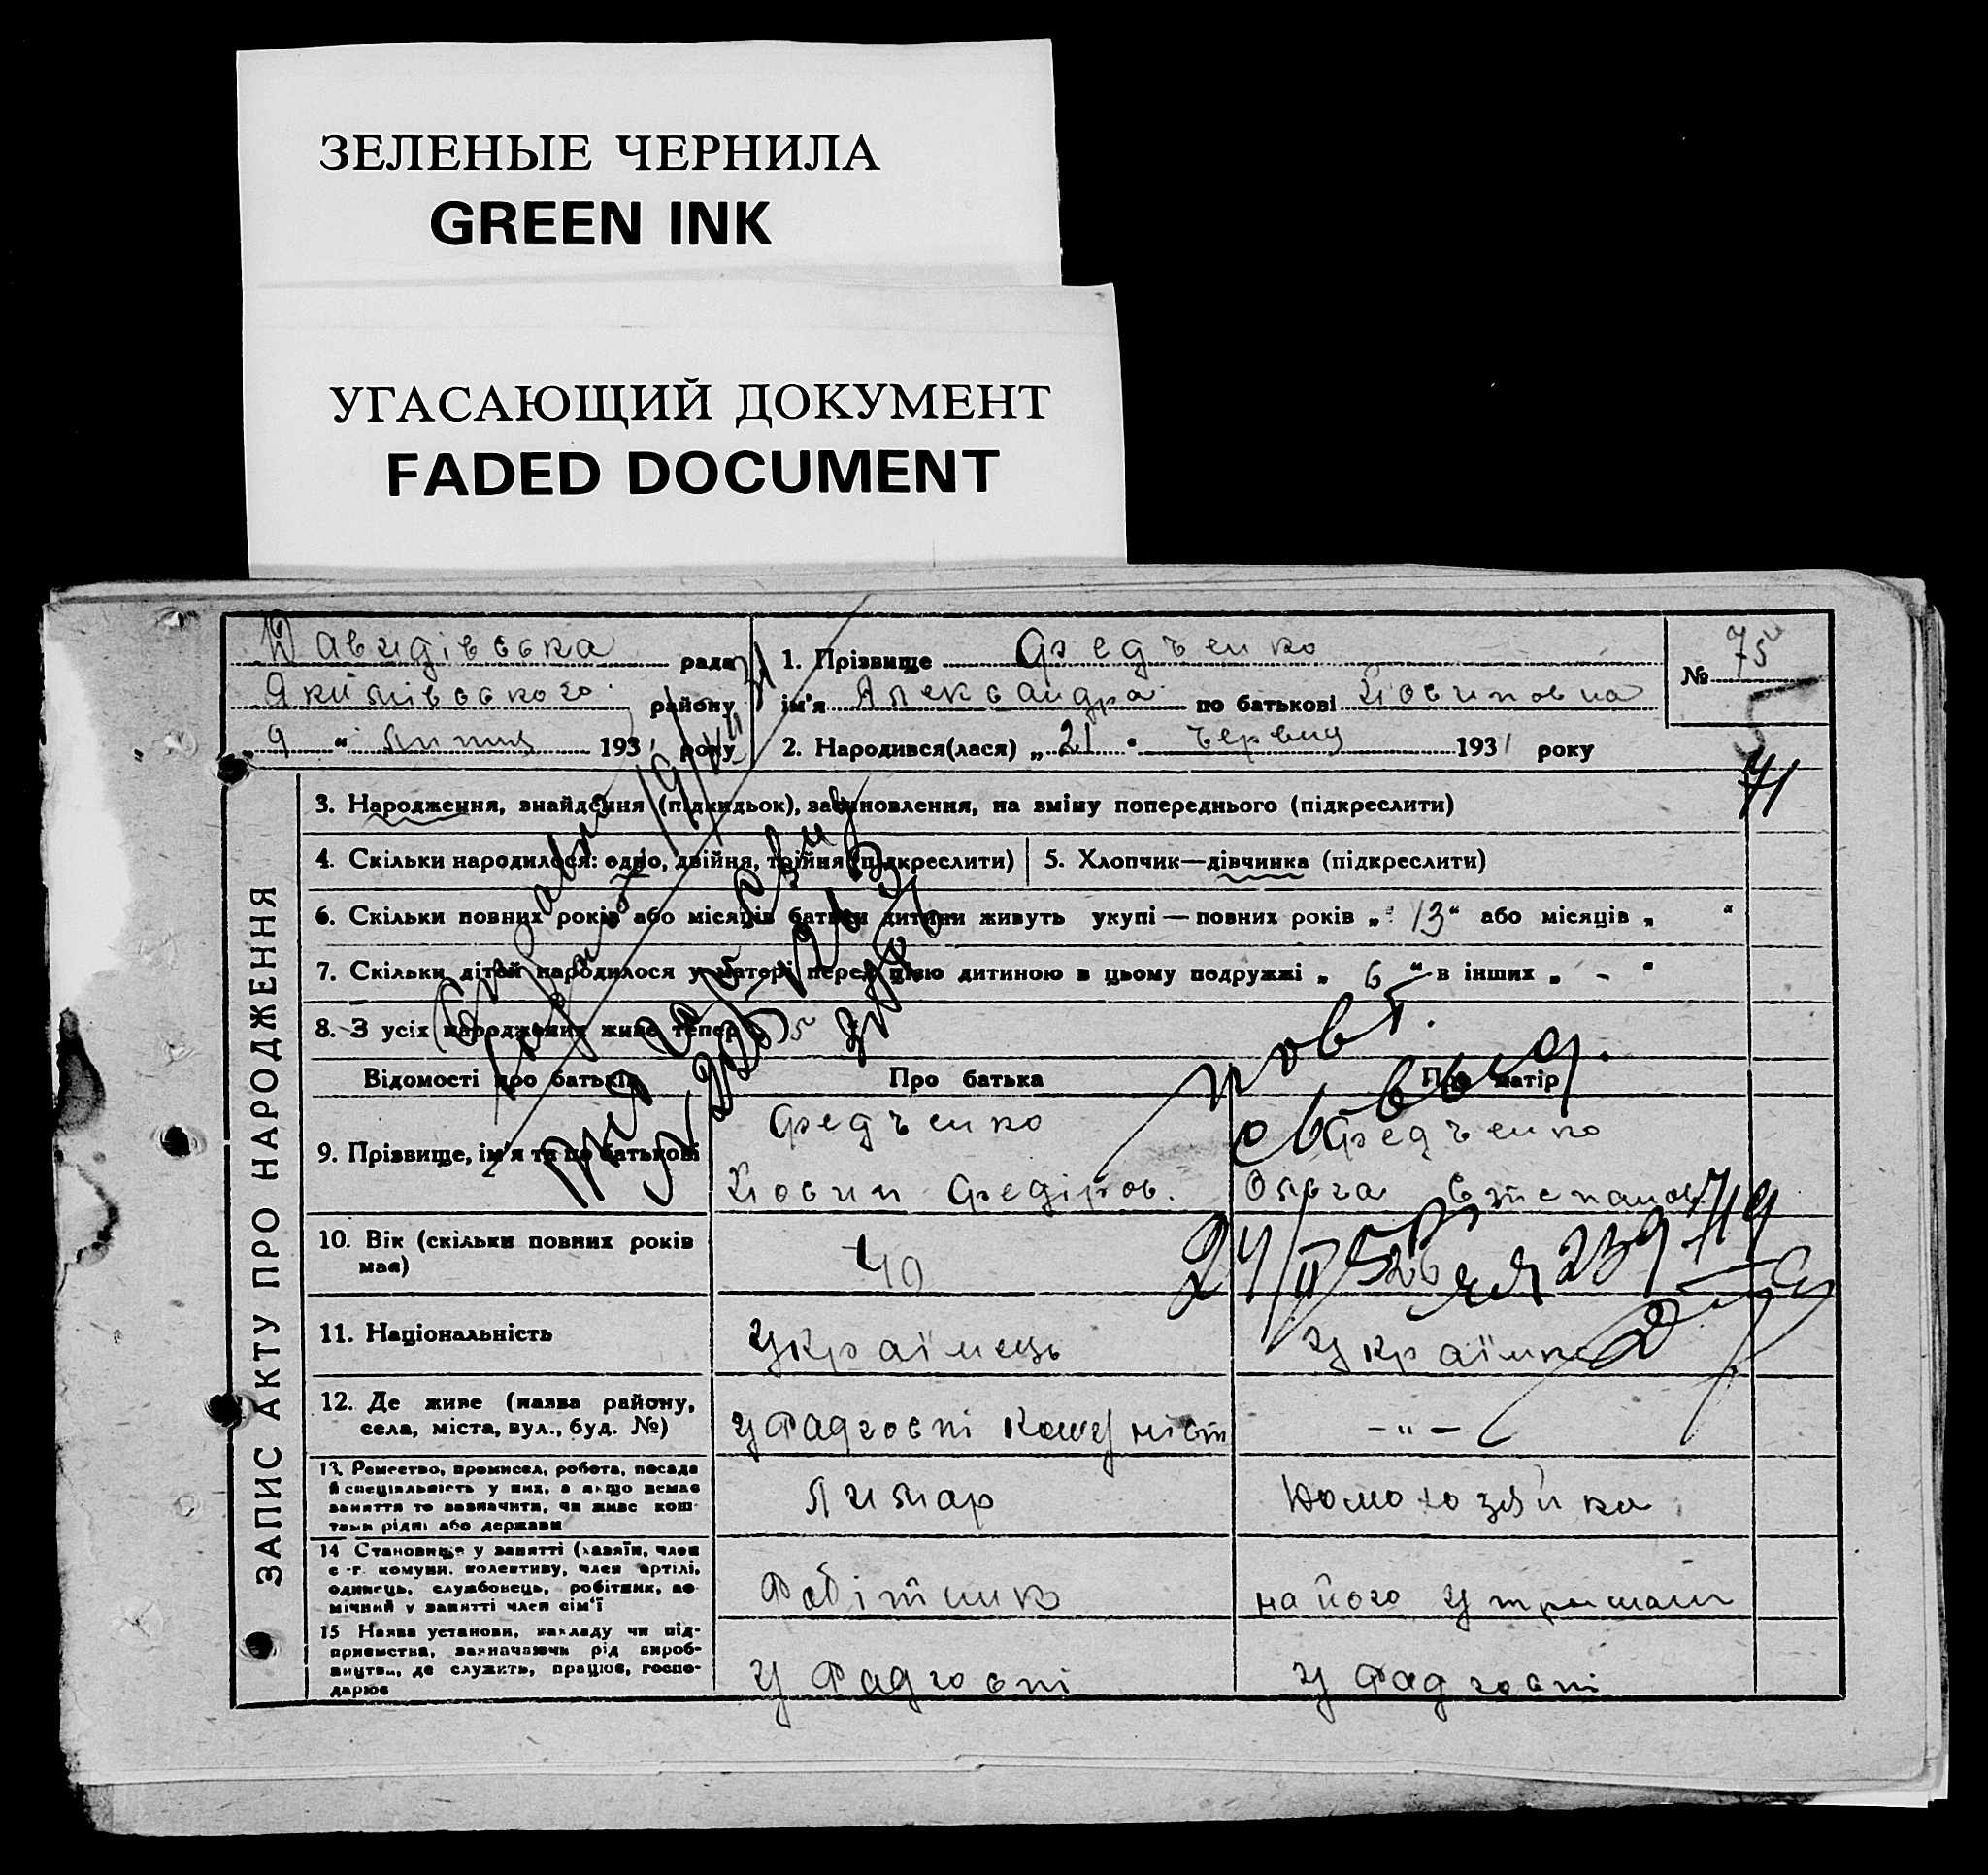 ЗЕЛЕНЫЕ ЧЕРНИЛА
GREEN INK
УГАСАЮЩИЙ ДОКУМЕНТ
FADED DOCUMENT
Давидівська рада
Якимівського району
9 " липня 1931 року
1. Прізвище Федъенко
ім'я Александра по батькові Йосиповна
2. Народився(лася) „ 21 " червня 1931 року
№ 75
71
ЗАПИС АКТУ ПРО НАРОДЖЕННЯ
3. Народження, знайдення (підкидьок), засиновлення, на зміну попереднього (підкреслити)
4. Скільки народилося: одно, двійня, трійня (підкреслити)
5. Хлопчик—дівчинка (підкреслити)
6. Скільки повних років або місяців батьки дитини живуть укупі — повних років „ 13 " або місяців „ "
7. Скільки дітей народилося у матері перед цією дитиною в цьому подружжі „ 6 " в інших „ - "
8. З усіх народжених живе тепер 5
Відомості про батьків
Про батька
Про матір
9. Прізвище, ім'я та по батькові
Федъенко
Йосип Федіров.
Федъенко
Ольга Степанов.
10. Вік (скільки повних років має)
40
24/II 52
11. Національність
Українець
Українка
12. Де живе (назва району,
села, міста, вул., буд. №)
у Радгоспі Комуніст
-"-
13. Ремество, промисел, робота, посада
й спеціяльність у них, а якщо немає
заняття то зазначити, чи живе кош-
тами рідні або держави
Лимар
Домохозяйка
14 Становище у занятті (хазяїн, член
с.-г. комуни, колективу, член артілі,
одинець, службовець, робітник, по-
мічний у занятті член сім'ї
Робітник
на його утриман
15 Назва установи, закладу чи під-
приємства, зазначаючи рід вироб-
ництва, де служить, працює, госпо-
дарює
у Радгоспі
у Радгоспі